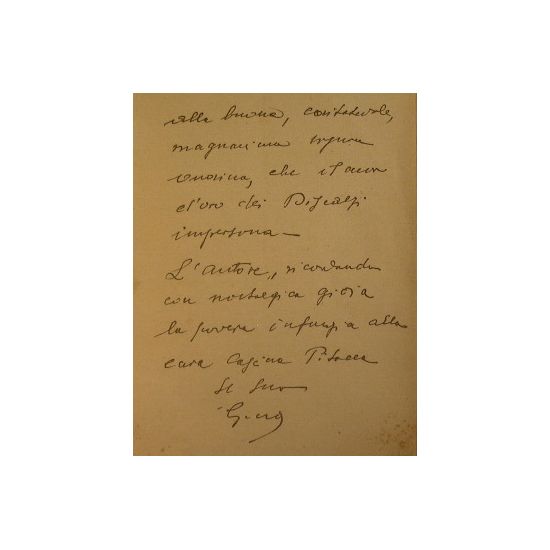 alla buona, caritatevole,
magnanima signora
che il cuore
d'oro dei
impersona—
L'autore, ricordando
con nostalgica gioia
la povera infanzia alla
cara Cascina
Il suo